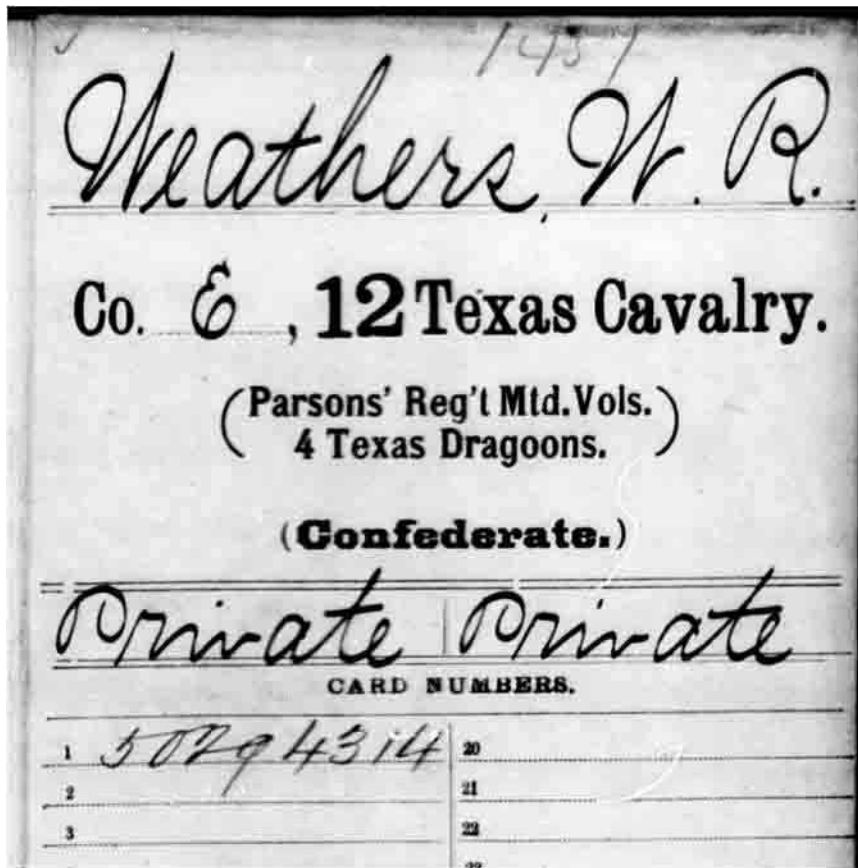 1437
Weathers, W. R.
Co. E, 12 Texas Cavalry.
(Parsons' Reg't Mtd. Vols.
4 Texas Dragoons.)
(Confederate.)
Private Private
CARD NUMBERS.
1 50294314 20
2 21
3 22